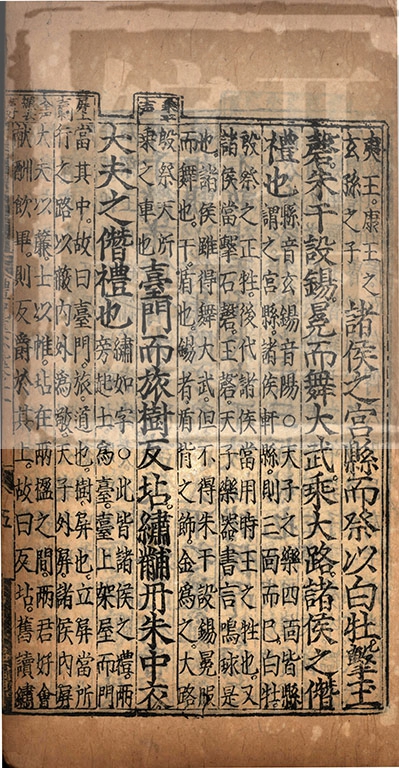 夷王。康王之
玄孫之子
諸侯之宮縣而祭以白牡擊玉
磬朱干設錫。冕而舞大武。乘大路諸侯之僭
禮也
縣音玄錫音陽○天子之樂四面皆縣
謂之宮縣。諸侯軒縣則三面而已。白牡。
殷祭之正牲。後代諸侯當用時王之牲也。又
諸侯當擊石磬。玉磬。天子樂器書言鳴球是
也諸侯雖得舞大武。但不得朱干設錫冕服
而舞也。干盾也。錫者盾背之飾。金為之。大路
殷祭天所
乘之車也
臺門而旅樹反坫。繡黼丹朱中衣
大夫之僭禮也
繡如字○此皆諸侯之禮。兩
旁起土為臺。臺上架屋而門
當其中。故曰臺門。旅。道也。樹。屏也。立屏當所
行之路以蔽內外為敬。天子外屏。諸侯內屏
大夫以簾士以帷。坫在兩楹之間。兩君好會
獻酬飲畢。則反爵於其上。故曰反坫。舊讀繡